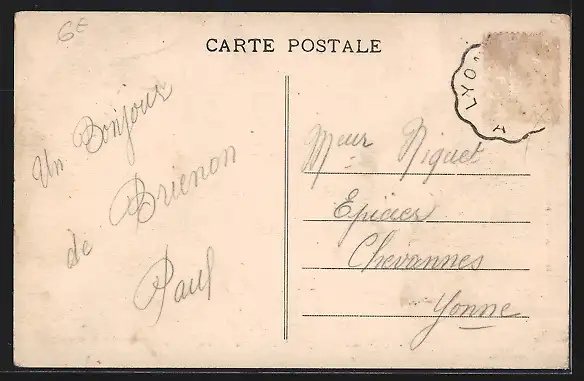 6E
CARTE POSTALE
LYON
A
Un Bonjour
de Brienon
Paul
Meur Niquet
Epicier
Chevannes
Yonne